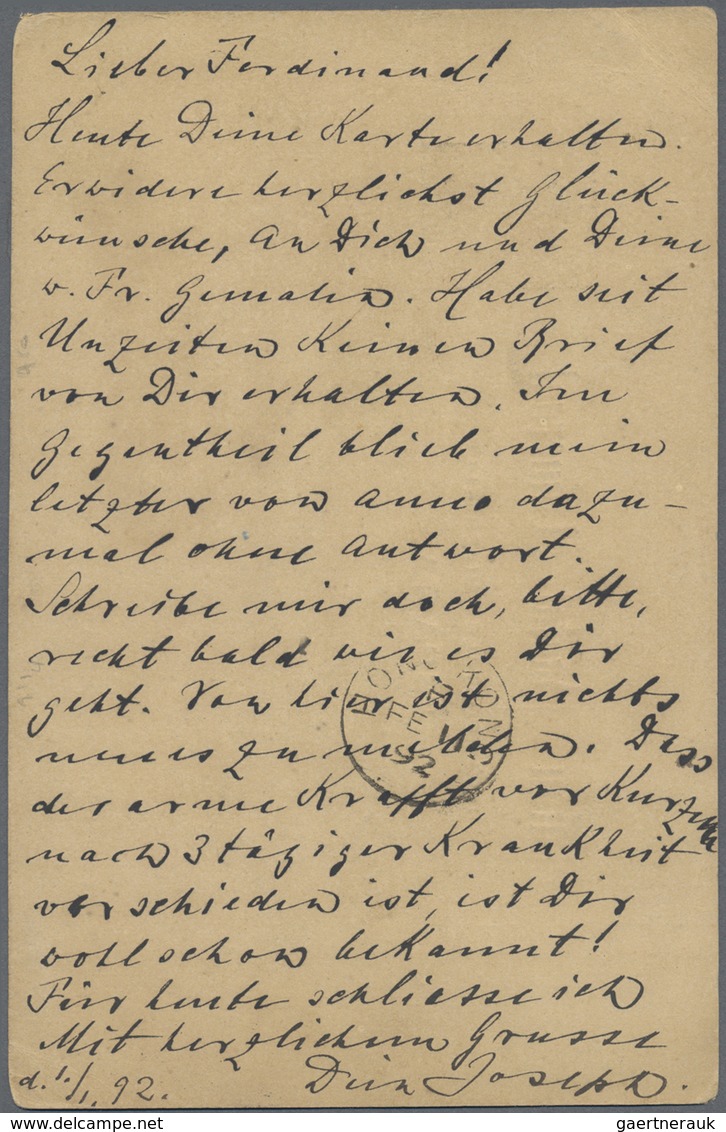 Lieber Ferdinand!
Heute Deine Karte erhalten.
Erwidere herzlichst Glück-
wünsche, an Dich und Deine
w. Fr. Gemalin. Habe seit
Unzeiten Keinen Brief
von Dir erhalten. Im
Gegentheil blieb mein
letzter von anno dazu-
mal ohne Antwort.
Schreibe mir doch, bitte,
recht bald wie es Dir
geht. Von hier ist nichts
neues zu melden. Dass
der arme Krafft vor Kurzem
nach 3 tägiger Krankheit
verschieden ist, ist Dir
wohl schon bekannt!
Für heute schliesse ich
Mit herzlichem Grusse
d. 1./1. 92. Dein Joseph.
HONG KONG
FE
92
delcampe.net
gaertnerauk